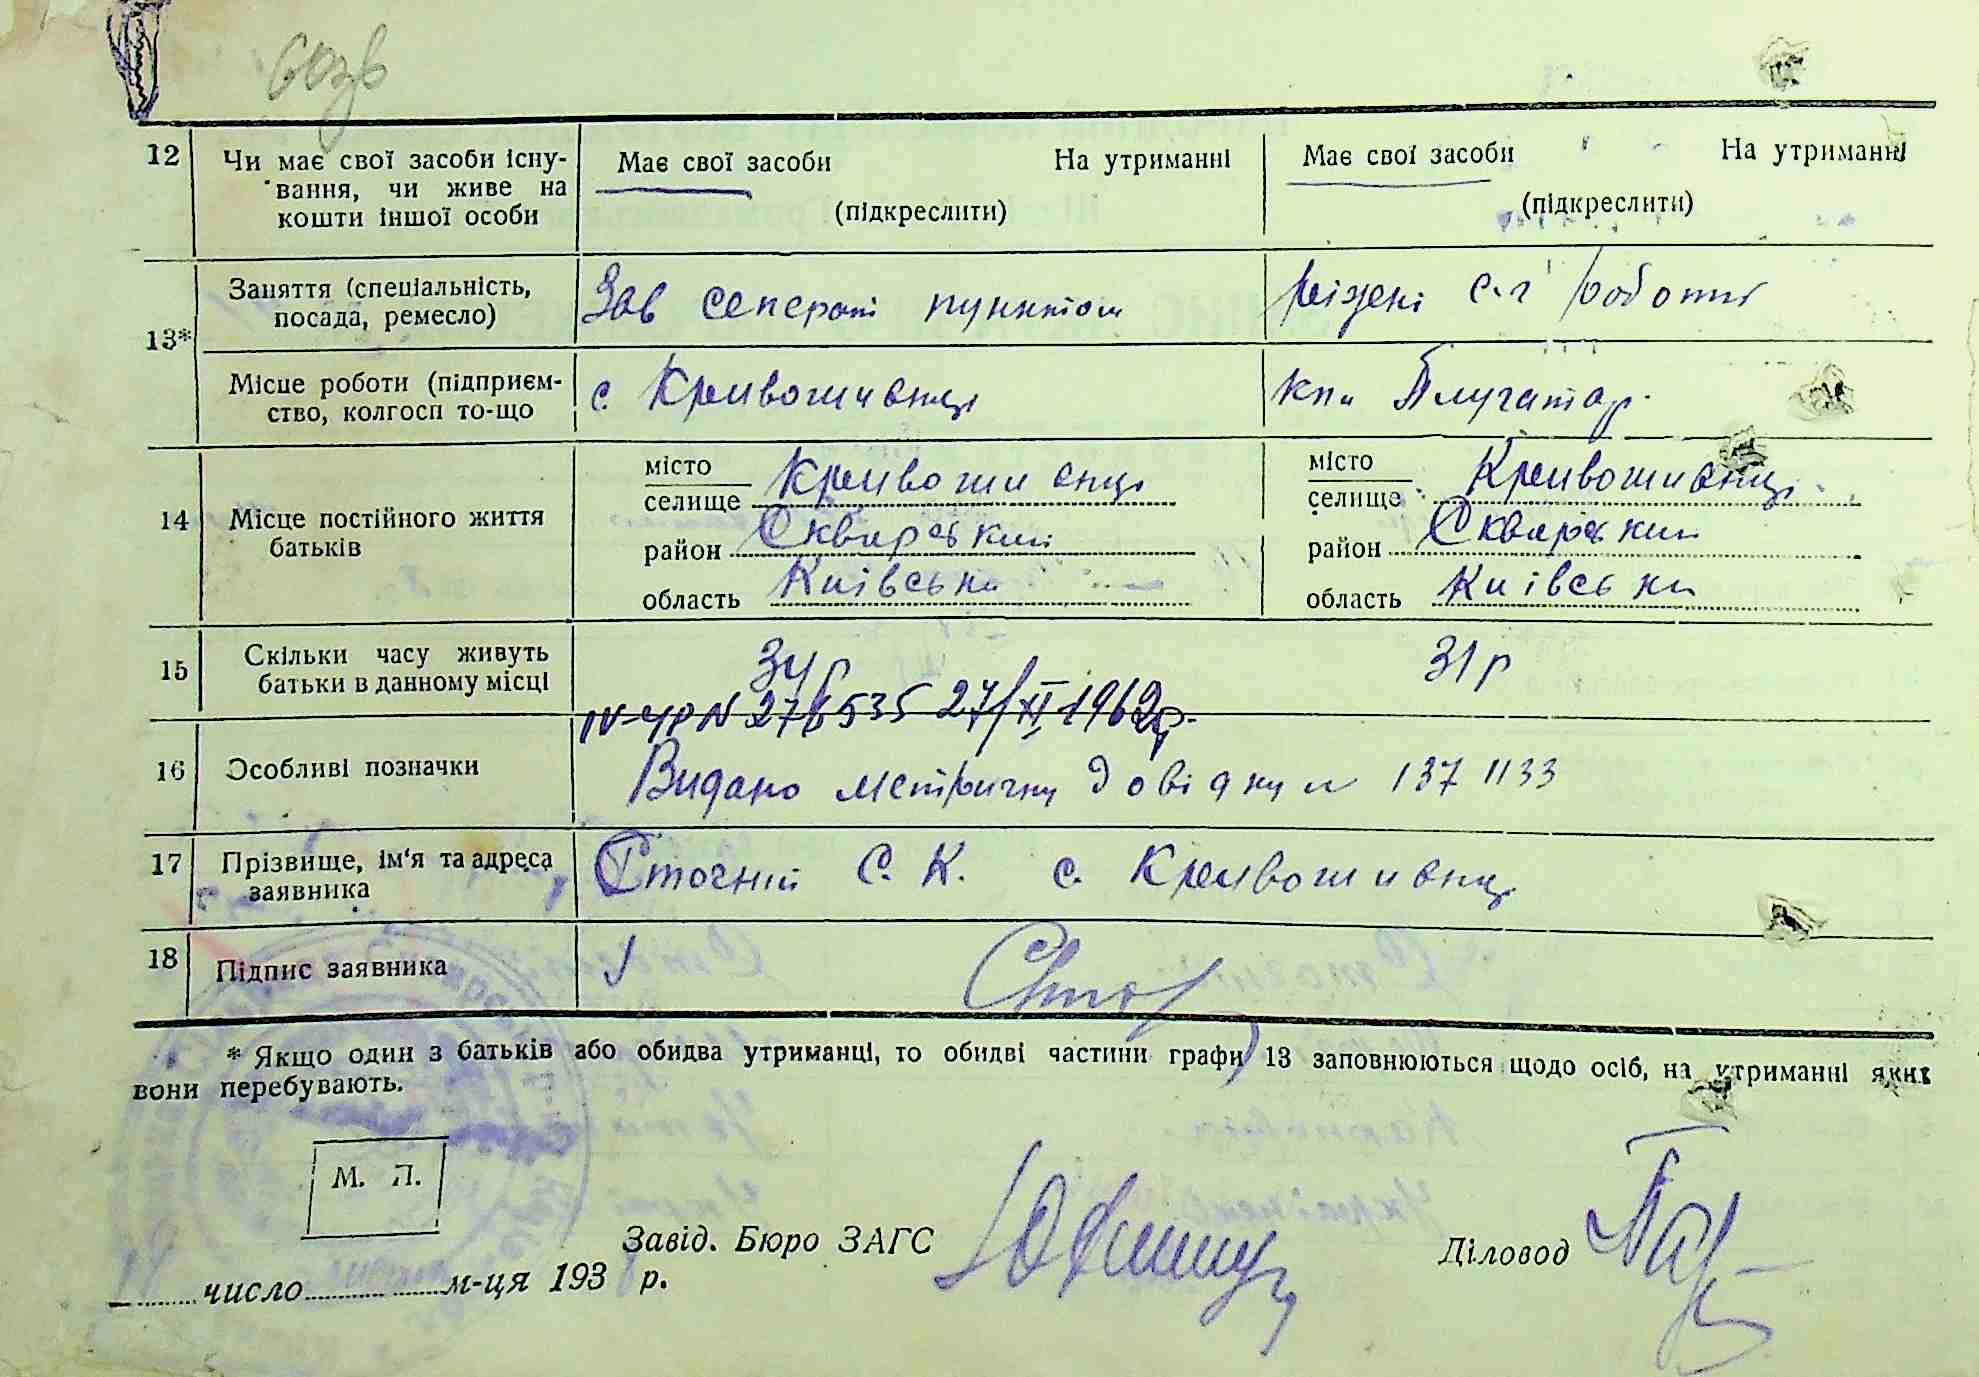 12 Чи має свої засоби існу- Має свої засоби На утриманні Має свої засоби На утриманні
вання, чи живе на
кошти іншої особи (підкреслити) (підкреслити)
13* Заняття (спеціальність, Зав сеператі пунктом ріжені с.г роботи
посада, ремесло)
Місце роботи (підприєм- с. Кривошиєнці кпи Плугатар.
ство, колгосп то-що
14 Місце постійного життя батьків
місто селище Кривошиєнці місто селище Кривошиєнці
район Сквирський район Сквирський
область Київська область Київська
15 Скільки часу живуть 34 р 31 р
батьки в данному місці
IV-УР N 276535 27/XI 1962р.
16 Особливі позначки Видано метричну довідку N 137 1133
17 Прізвище, ім'я та адреса Стогній С. К. с. Кривошиєнці
заявника
18 Підпис заявника Стог
* Якщо один з батьків або обидва утриманці, то обидві частини графи 13 заповнюються щодо осіб, на утриманні яких
вони перебувають.
М. П.
Завід. Бюро ЗАГС Діловод
число м-ця 193 р.